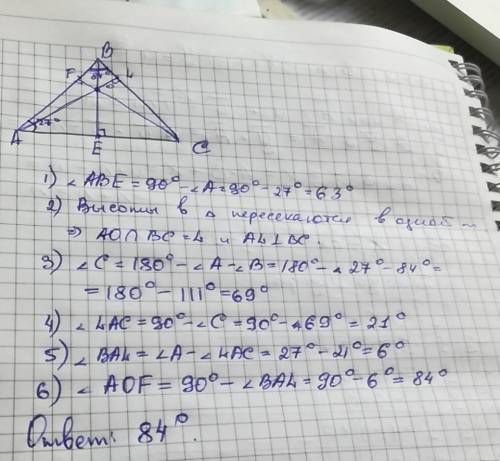 B
F
L
27°
A
E
C
1) ∠ABE = 90° - ∠A = 90° - 27° = 63°
2) Высоты в Δ пересекаются в одной
⇒ AO ∩ BC = L и AL ⊥ BC.
3) ∠C = 180° - ∠A - ∠B = 180° - 27° - 84° =
= 180° - 111° = 69°
4) ∠LAC = 90° - ∠C = 90° - 69° = 21°
5) ∠BAL = ∠A - ∠LAC = 27° - 21° = 6°
6) ∠AOF = 90° - ∠BAL = 90° - 6° = 84°
Ответ: 84°.